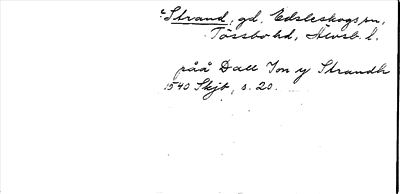 Strand, gd. Edsleskogs sn,
Tössbo hd, Älvsb. l.
påå Dall Jon y Strandh
1540 Skjb, s. 20.